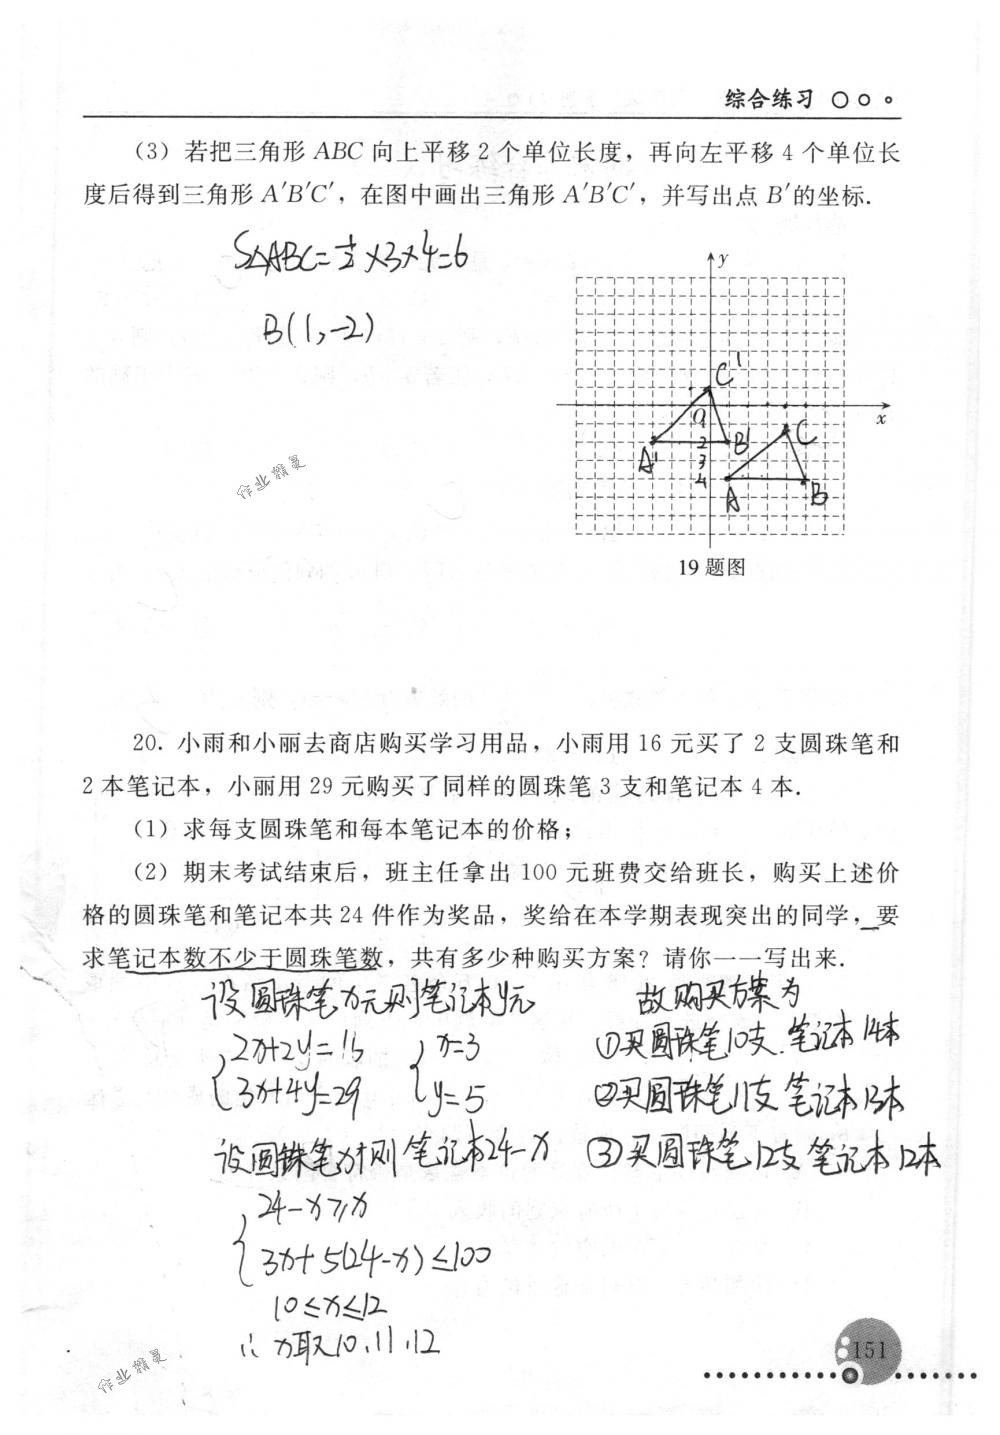 综合练习
(3) 若把三角形 ABC 向上平移 2 个单位长度，再向左平移 4 个单位长
度后得到三角形 A′B′C′，在图中画出三角形 A′B′C′，并写出点 B′的坐标.
S△ABC=½×3×4=6
B(1,-2)
y
C′
x
1
2
3
4
A′
B′
C
A
B
19 题图
作业精灵
20. 小雨和小丽去商店购买学习用品，小雨用 16 元买了 2 支圆珠笔和
2 本笔记本，小丽用 29 元购买了同样的圆珠笔 3 支和笔记本 4 本.
(1) 求每支圆珠笔和每本笔记本的价格；
(2) 期末考试结束后，班主任拿出 100 元班费交给班长，购买上述价
格的圆珠笔和笔记本共 24 件作为奖品，奖给在本学期表现突出的同学，要
求笔记本数不少于圆珠笔数，共有多少种购买方案？请你一一写出来.
设圆珠笔x元则笔记本y元
2x+2y=16
3x+4y=29
x=3
y=5
设圆珠笔x支则笔记本24-x
24-x≥x
3x+5(24-x)≤100
10≤x≤12
∴x取10,11,12
故购买方案为
①买圆珠笔10支.笔记本14本
②买圆珠笔11支笔记本13本
③买圆珠笔12支笔记本12本
作业精灵
151